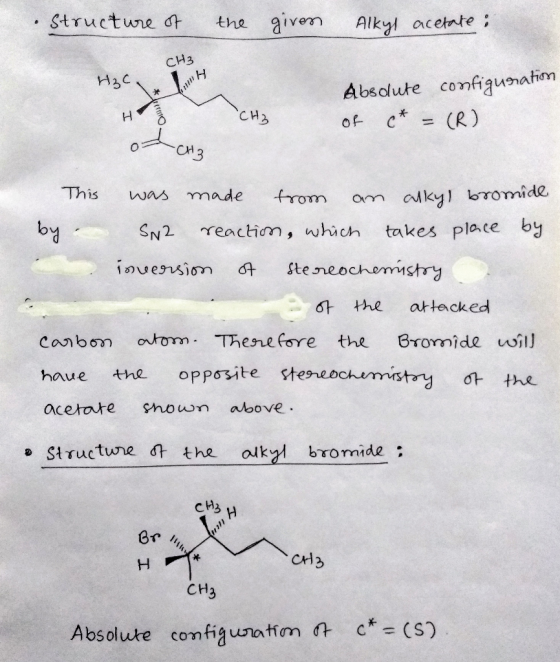 • Structure of the given Alkyl acetate :
CH3
H3C
*
H
H
O
CH3
O
CH3
Absolute configuration
of C* = (R)
This was made from an alkyl bromide
by SN2 reaction, which takes place by
inversion of stereochemistry
of the attacked
carbon atom. Therefore the Bromide will
have the opposite stereochemistry of the
acetate shown above.
• Structure of the alkyl bromide :
CH3
H
Br
H
*
CH3
CH3
Absolute configuration of C* = (S).